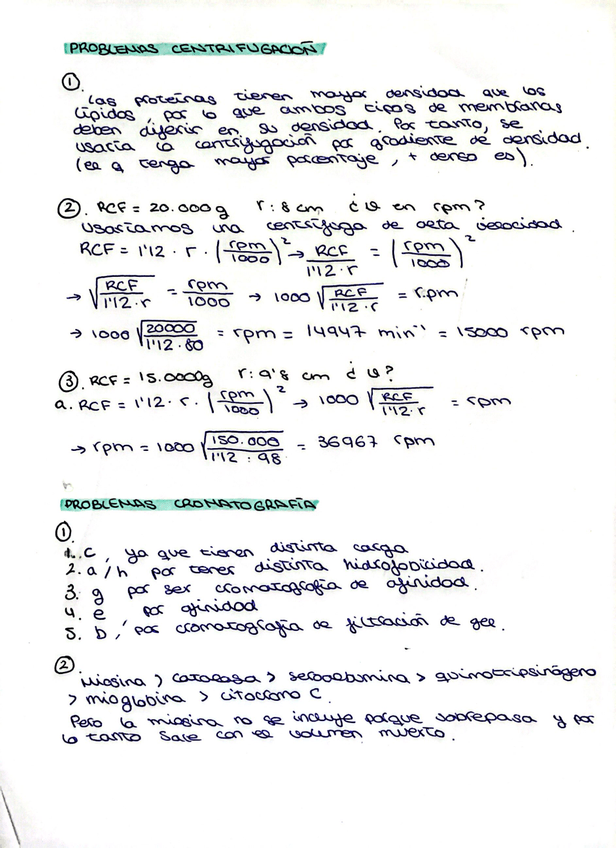 PROBLEMAS CENTRIFUGACIÓN
①
Las proteínas tienen mayor densidad que los
lípidos, por lo que ambos tipos de membranas
deben diferir en su densidad. Por tanto, se
usaría la centrifugación por gradiente de densidad.
(el q tenga mayor porcentaje, + denso es).
②. RCF = 20.000g r: 8 cm ¿ν en rpm?
Usaríamos una centrífuga de alta velocidad.
RCF = 1'12 · r · (rpm/1000)² → RCF/1'12·r = (rpm/1000)²
→ √(RCF/1'12·r) = rpm/1000 → 1000 √(RCF/1'12·r) = rpm
→ 1000 √(20000/1'12·80) = rpm = 14947 min⁻¹ = 15000 rpm
③. RCF = 15.0000g r: 9'8 cm ¿ν?
a. RCF = 1'12 · r · (rpm/1000)² → 1000 √(RCF/1'12·r) = rpm
→ rpm = 1000 √(150.000/1'12 · 98) = 36967 rpm
PROBLEMAS CROMATOGRAFÍA
①
1. C, ya que tienen distinta carga
2. a/h por tener distinta hidrofobicidad.
3. g por ser cromatografía de afinidad.
4. e por afinidad
5. b, por cromatografía de filtración de gel.
②
Miosina > catalasa > seroalbumina > quimotripsinógeno
> mioglobina > citocromo C.
Pero la miosina no se incluye porque sobrepasa y por
lo tanto sale con el volumen muerto.